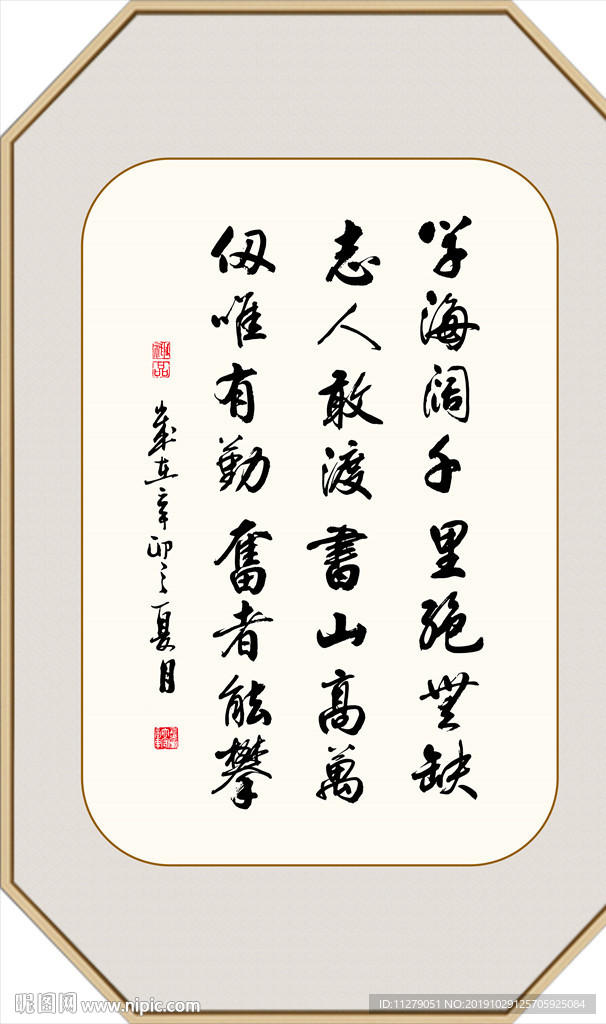 学海阔千里绝无缺
志人敢渡书山高萬
仭唯有勤奮者能攀
歲在辛卯之夏月
昵图网 www.nipic.com
ID:11279051 NO:20191029125705925084